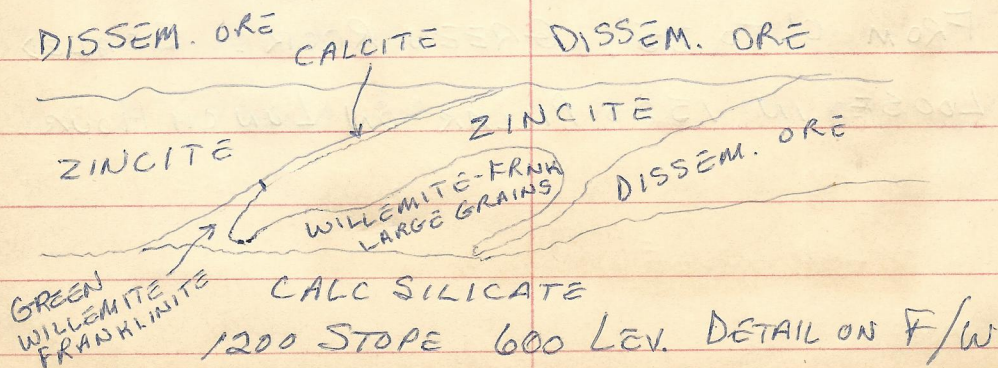 DISSEM. ORE
CALCITE
DISSEM. ORE
ZINCITE
ZINCITE
DISSEM. ORE
WILLEMITE-FRNK
LARGE GRAINS
GREEN
WILLEMITE
FRANKLINITE
CALC SILICATE
1200 STOPE 600 LEV. DETAIL ON F/W